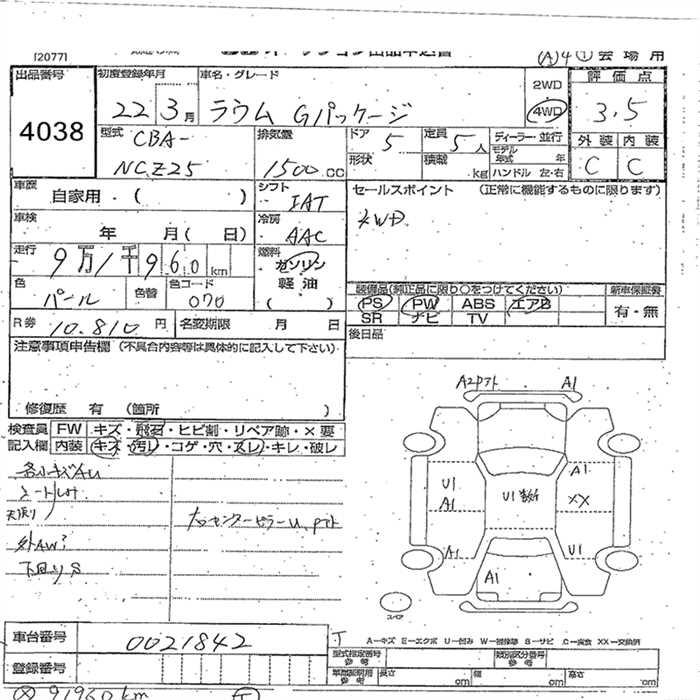 [2077]
(A) 4 ① 会場用
出品番号 4038
初度登録年月 22 3月
車名・グレード ラウム Gパッケージ
2WD
4WD
評価点 3.5
型式 CBA-
NCZ25
排気量 1500 CC
ドア 5
定員 5人
形状
積載 kg
ディーラー 並行
モデル年式 年
ハンドル 左・右
外装 C
内装 C
車歴 自家用・( )
シフト IAT
セールスポイント (正常に機能するものに限ります)
4WD
車検 年 月( 日)
冷房 AAC
走行 9万1千960km
燃料 ガソリン
軽油
( )
色 パール
色替
色コード 070
装備品(純正品に限り○をつけてください)
新車保証書
PS PW ABS エアB
有・無
SR ナビ TV
R券 10.810円
名変期限 月 日
後日品
注意事項申告欄(不具合内容等は具体的に記入して下さい)
修復歴 有 (箇所 )
検査員 FW キズ・飛石・ヒビ割・リペア跡・×要
記入欄 内装 キズ・汚レ・コゲ・穴・スレ・キレ・破レ
各小キズAU
外AW
下回りS
A1
U1
A1
U1
A1
XX
A1
U1
A1
スペア
車台番号 0021842
登録番号
A―キズ E―エクボ U―凹み W―補修跡 S―サビ C―腐食 XX―交換済
型式指定番号 参考
類別区分番号 参考
車庫証明用 参考
長さ
幅
高さ
91960km